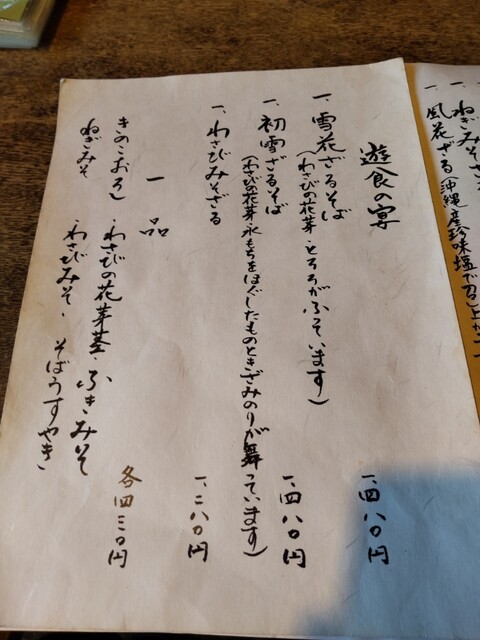 一、ねぎみそ
一、風花ざる(沖縄産珍味塩で召し上がる
遊食の宴
一、雪花ざるそば 一、四八〇円
(わさびの花芽・とろろがふっています)
一、初雪ざるそば 一、四八〇円
(わさびの花芽・氷もちをほぐしたものときざみのりが舞っています)
一、わさびみそざる 一、二八〇円
一品
きのこおろし・わさびの花芽茎・ふきみそ 各四三〇円
ねぎみそ・わさびみそ・そばうすやき